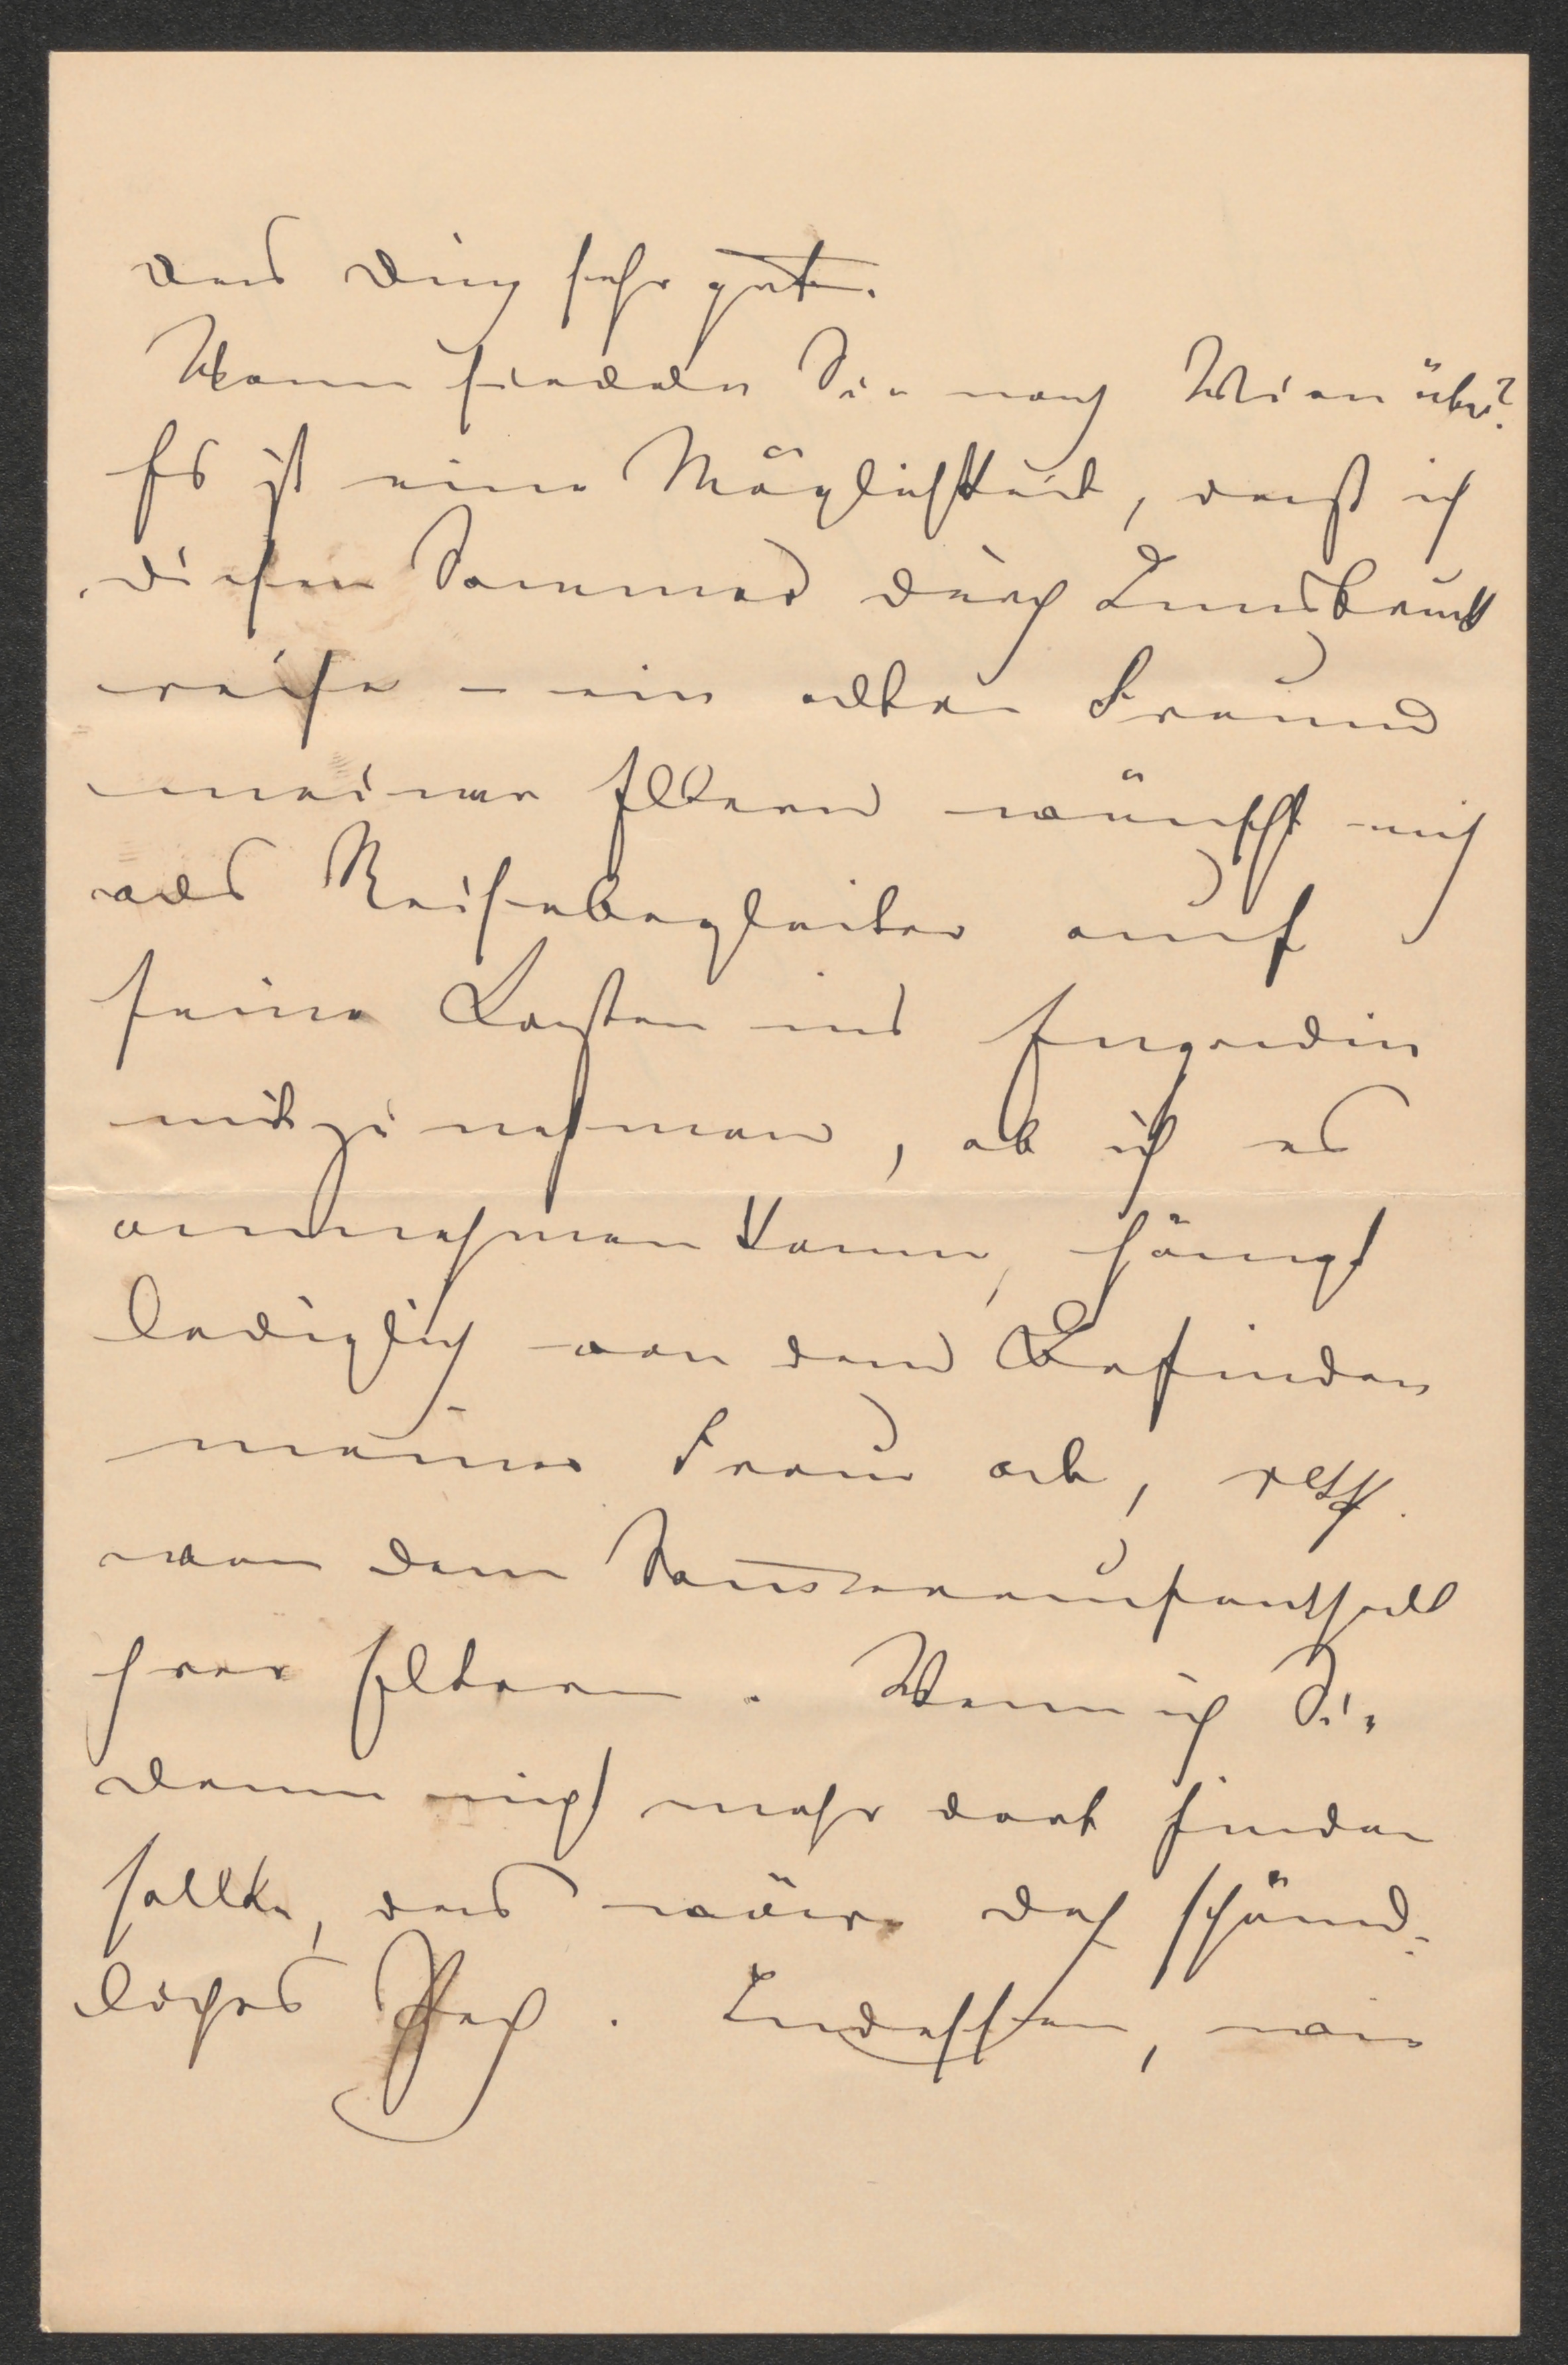 das Ding sehr gut.
Wann siedeln Sie nach Wien über?
Es ist eine Möglichkeit, daß ich
diesen Sommer durch Innsbruck
reise – ein alter Freund
meiner Eltern wünscht mich
als Reisebegleiter auf
seine Kosten ins Engadin
mitzunehmen, ob ich es
annehmen kann, hängt
lediglich von dem Befinden
meiner Frau ab, resp.
von dem Sommeraufenthalt
ihrer Eltern. Wenn ich Sie
dann nicht mehr dort finden
sollte, das wäre doch schänd-
liches Pech. Indessen, wie